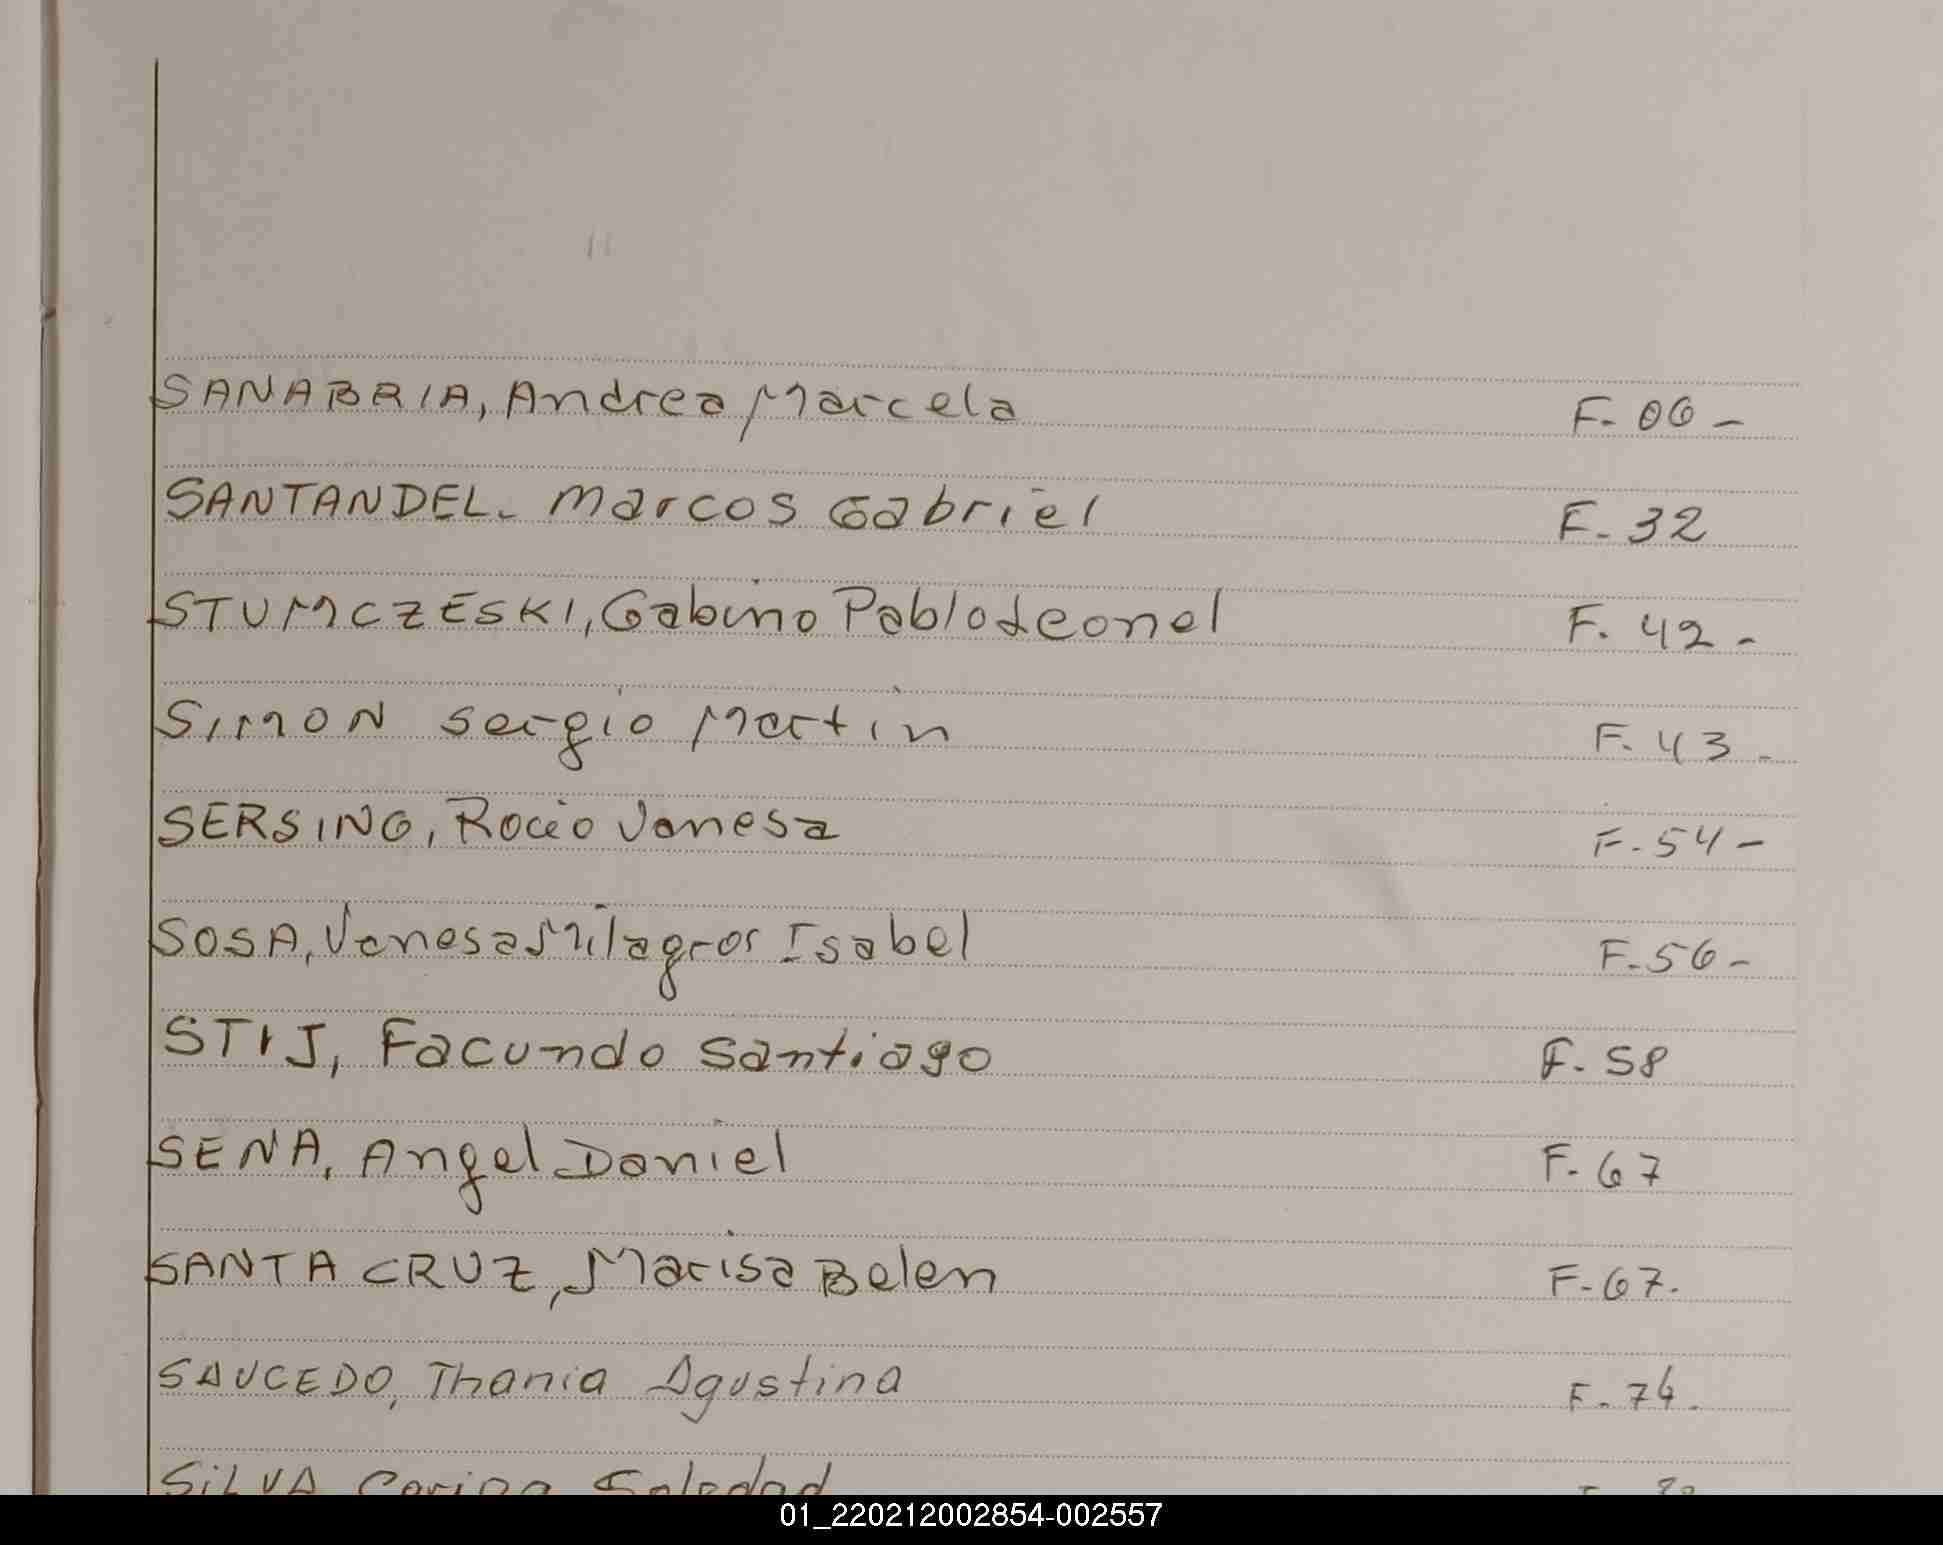 SANABRIA, Andrea Marcela F. 06 -
SANTANDEL. Marcos Gabriel F. 32
STUMCZESKI, Gabino Pablo Leonel F. 42 -
SIMON Sergio Martin F. 43 -
SERSING, Rocio Vanesa F. 54 -
SOSA, Vanesa Milagros Isabel F. 56 -
STIJ, Facundo Santiago F. 58
SENA, Angel Daniel F. 67
SANTA CRUZ, Marisa Belen F. 67.
SAUCEDO, Thania Agustina F. 74.
SILVA Soledad
01_220212002854-002557